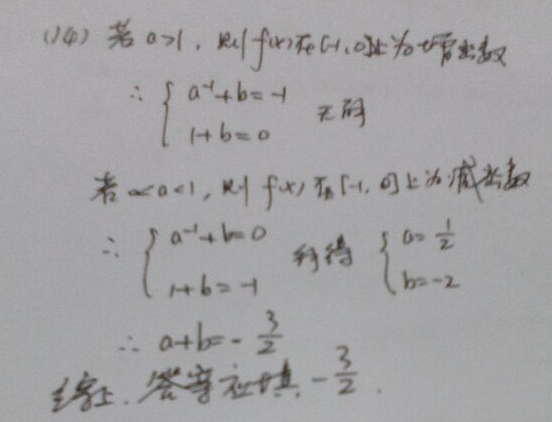 (14) 若 a>1, 则 f(x) 在 [-1, 0] 上为增函数
∴ { a⁻¹+b=-1
1+b=0 无解
若 0<a<1, 则 f(x) 在 [-1, 0] 上为减函数
∴ { a⁻¹+b=0
1+b=-1 解得 { a=1/2
b=-2
∴ a+b=-3/2
综上, 答案应填 -3/2.